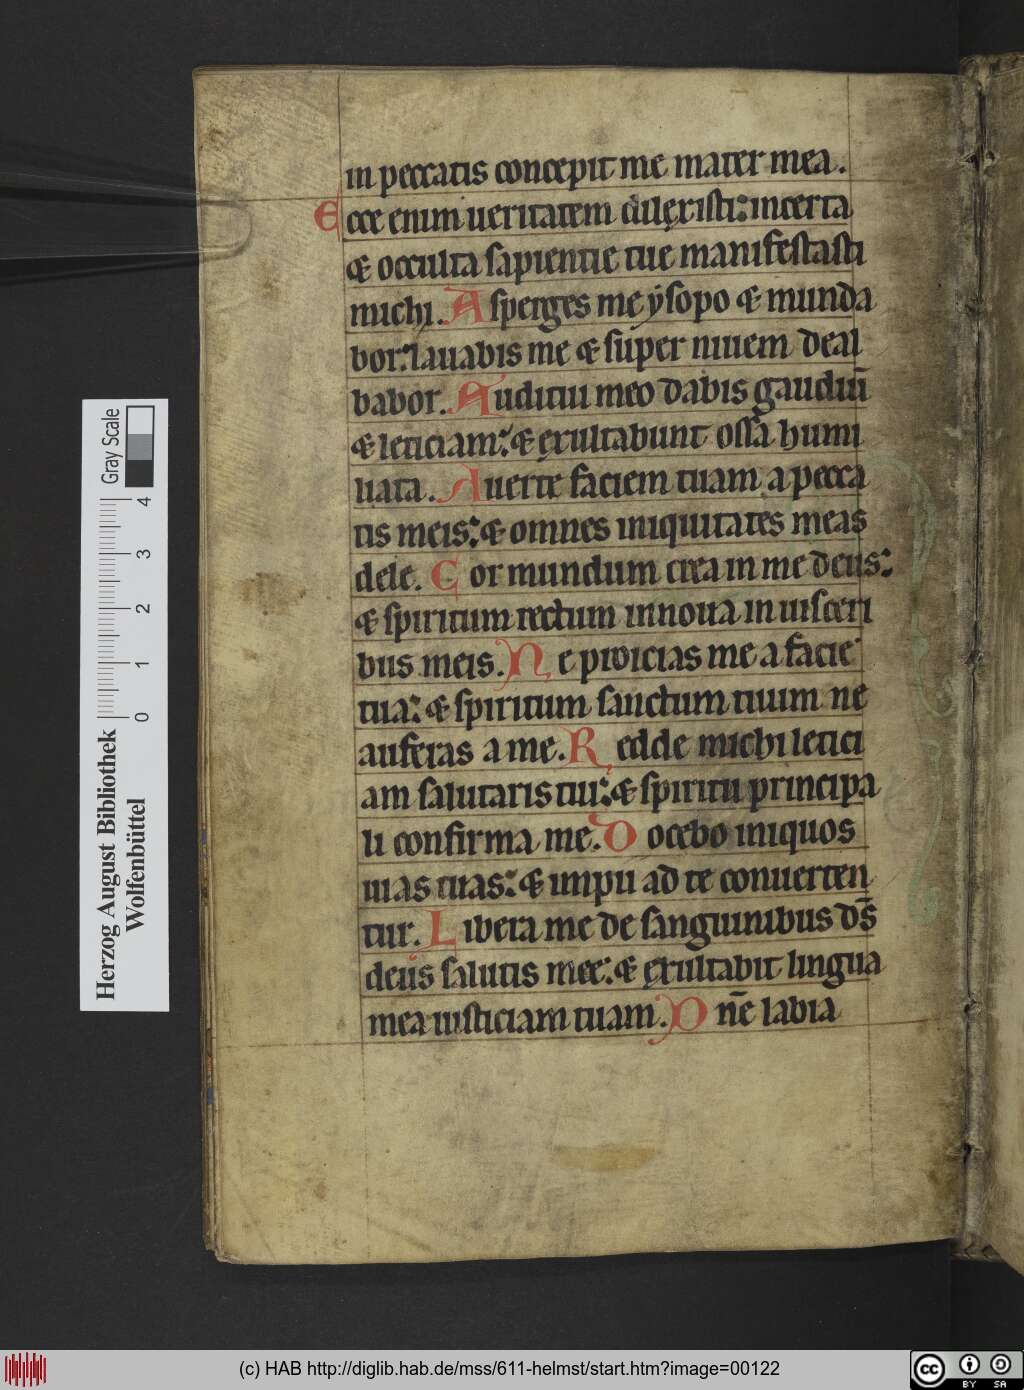 in peccatis concepit me mater mea.
Ecce enim ueritatem dilexisti: incerta
& occulta sapientie tue manifestasti
michi. Asperges me ysopo & munda
bor: lauabis me & super niuem deal
babor. Auditui meo dabis gaudiū
& leticiam: & exultabunt ossa humi
liata. Auerte faciem tuam a pecca
tis meis: & omnes iniquitates meas
dele. Cor mundum crea in me deus:
& spiritum rectum innoua in uisceri
bus meis. Ne proicias me a facie
tua: & spiritum sanctum tuum ne
auferas a me. Redde michi letici
am salutaris tui: & spiritu principa
li confirma me. Docebo iniquos
uias tuas: & impii ad te conuerten
tur. Libera me de sanguinibus ds̄
deus salutis mee: & exultabit lingua
mea iusticiam tuam. Dne̅ labia
Herzog August Bibliothek
Wolfenbüttel
0 1 2 3 4
Gray Scale
(c) HAB http://diglib.hab.de/mss/611-helmst/start.htm?image=00122
cc BY SA